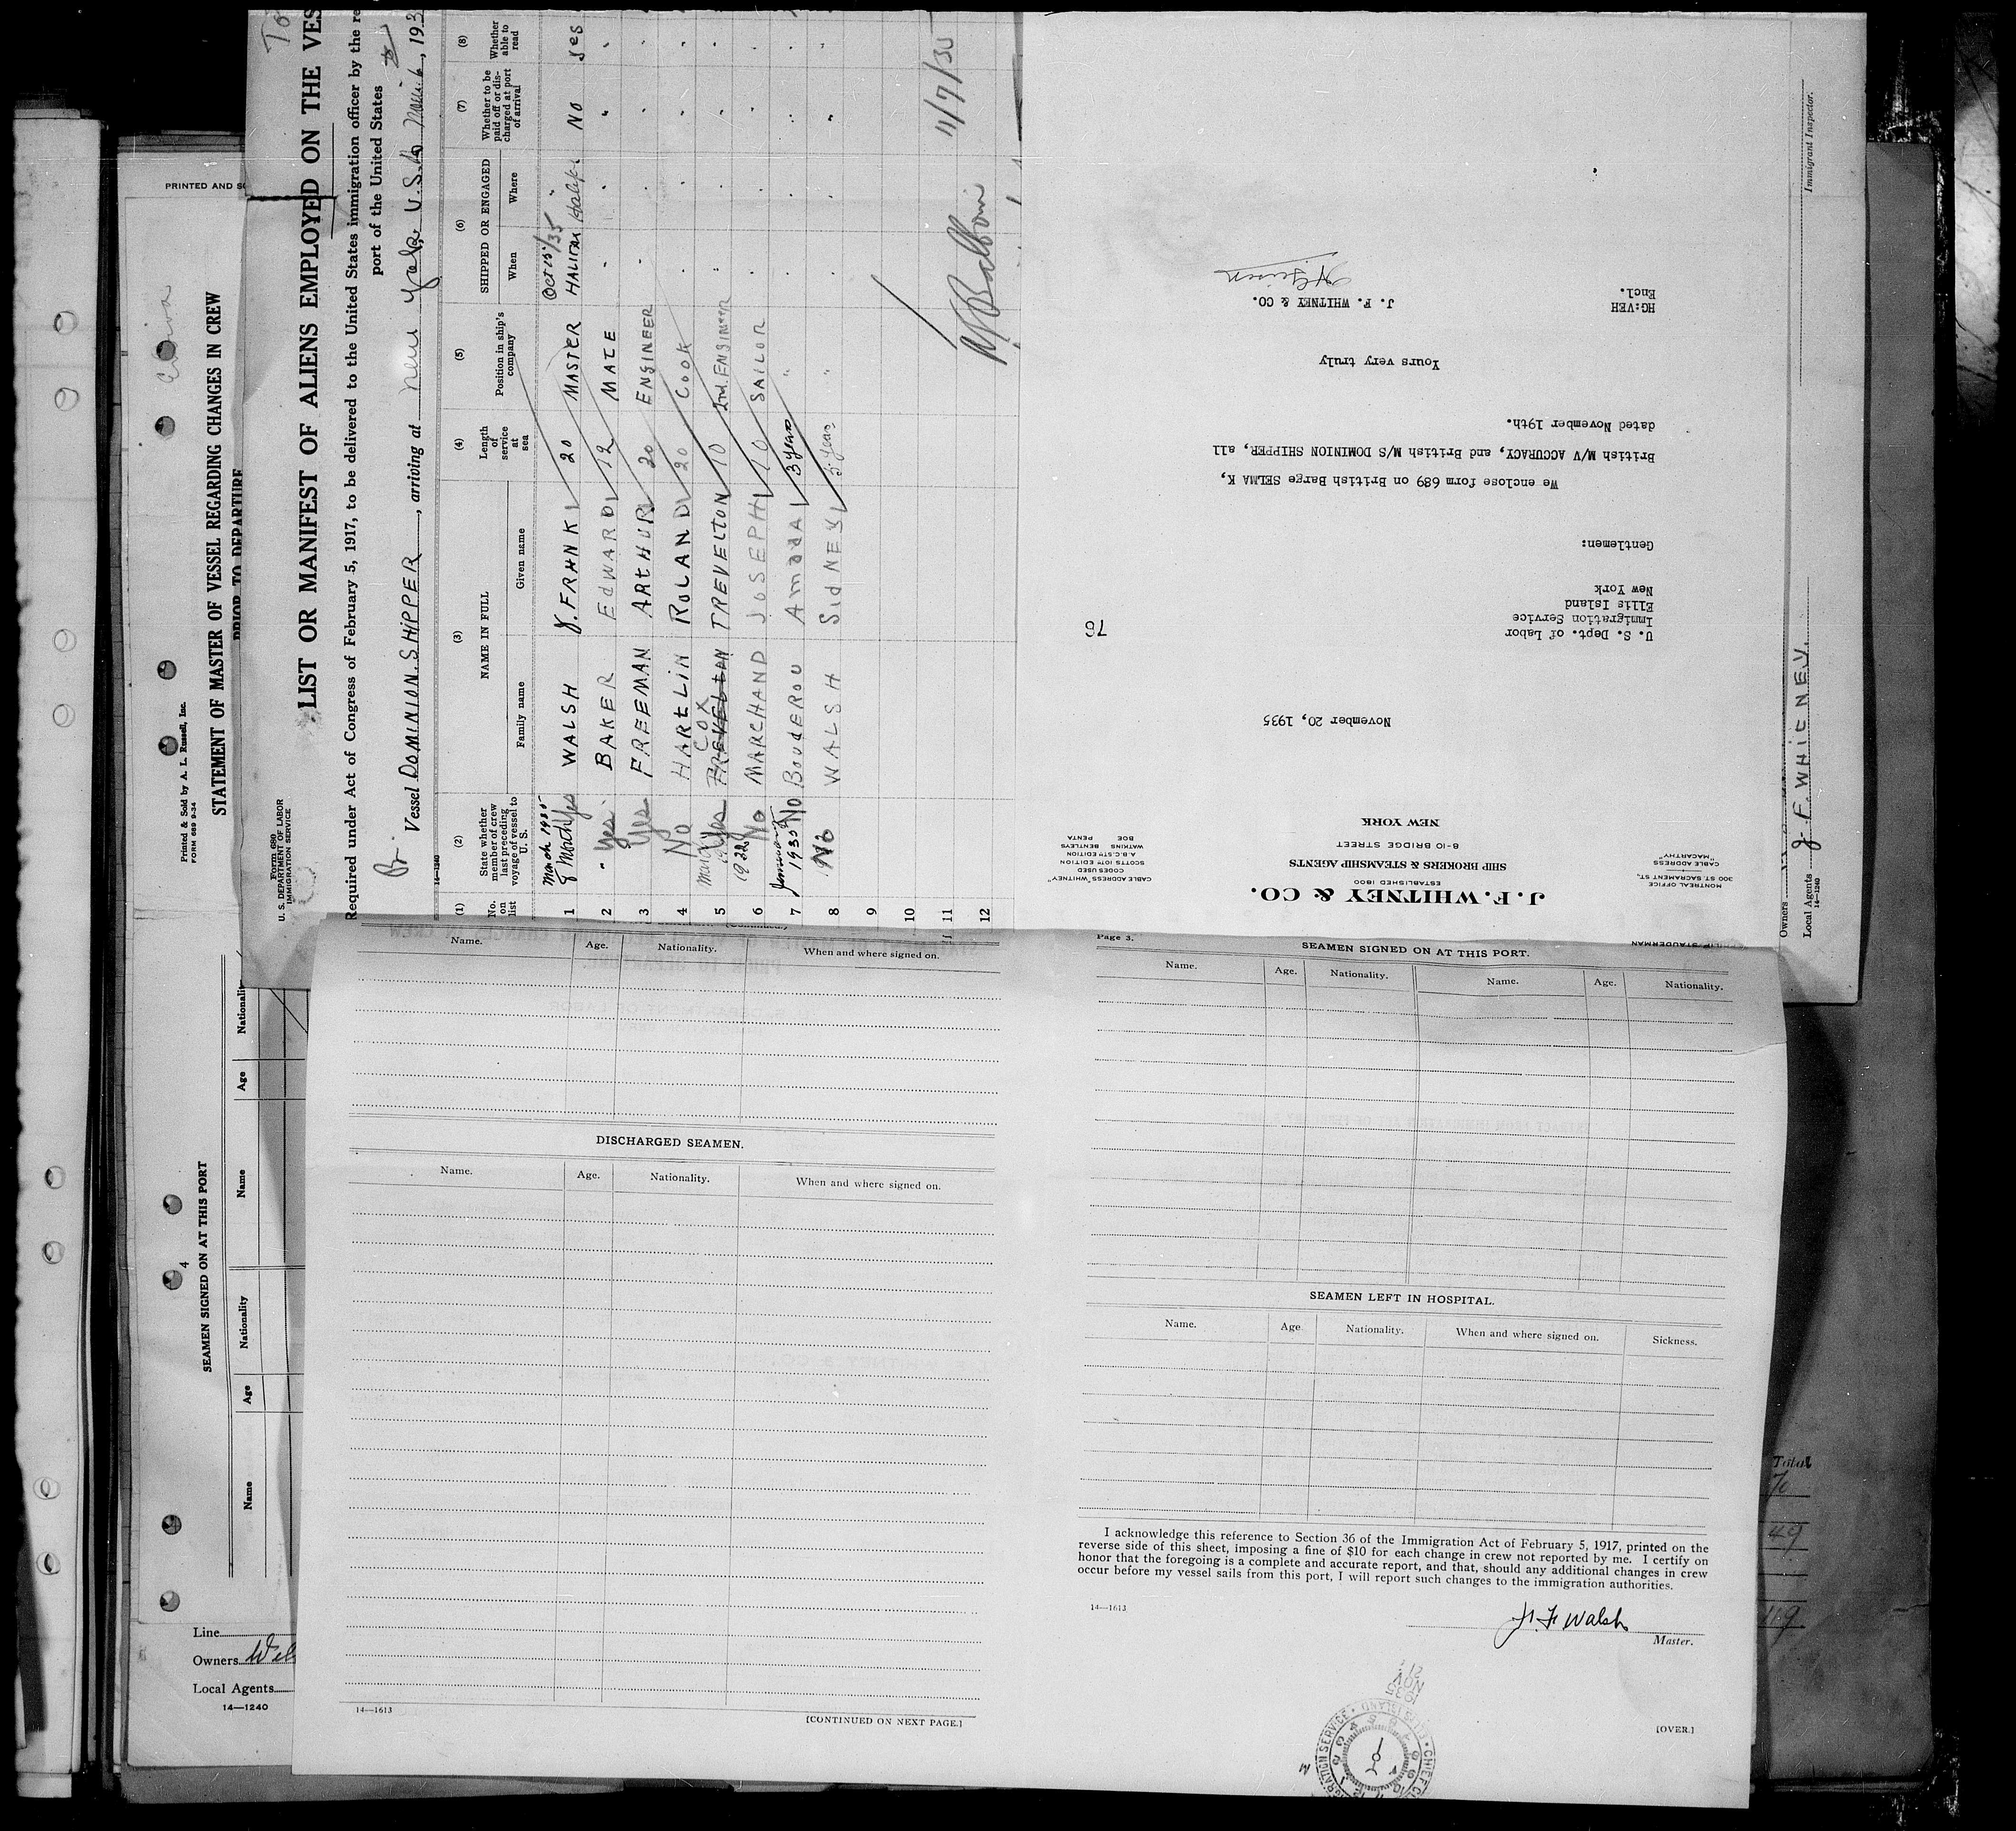 PRINTED AND
Printed & Sold by A. L. Russell, Inc.
FORM 689 9-34
STATEMENT OF MASTER OF VESSEL REGARDING CHANGES IN CREW
PRIOR TO DEPARTURE
4
SEAMEN SIGNED ON AT THIS PORT
Name Age Nationality Name Age Nationality
Line
Owners
Local Agents
14—1240
Form 680
U. S. DEPARTMENT OF LABOR
IMMIGRATION SERVICE
LIST OR MANIFEST OF ALIENS EMPLOYED ON THE VES
Required under Act of Congress of February 5, 1917, to be delivered to the United States immigration officer by the re
port of the United States
Br. Vessel DOMINION. SHIPPER, arriving at New York U.S.A., 193
14—1240
(1) (2) (3) (4) (5) (6) (7) (8)
No. on list
State whether member of crew last preceding voyage of vessel to U. S.
NAME IN FULL
Family name Given name
Length of service at sea
Position in ship's company
SHIPPED OR ENGAGED
When Where
Whether to be paid off or discharged at port of arrival
Whether able to read
March 1935 Oct 15/35
1 Yes WALSH J. FRANK 20 MASTER HALIFAX Halifax No yes
2 " Yes BAKER EDWARD 12 MATE " " " "
3 Yes FREEMAN ARTHUR 30 ENGINEER
4 No HARTLIN ROLAND 20 COOK
5 Yes COX TREVELTON 10 2nd. ENGINEER
1922
6 No MARCHAND JOSEPH 10 SAILOR
7 January 1935 No BOUDEROU Amada 3 years "
8 No WALSH SIDNEY 5 years "
9
10
11
12
11/7/35
Immigrant Inspector.
Owners
Local Agents J. F. WHITNEY.
14—1240
J. F. WHITNEY & CO.
ESTABLISHED 1800
SHIP BROKERS & STEAMSHIP AGENTS
8-10 BRIDGE STREET
NEW YORK
MONTREAL OFFICE
300 ST. SACRAMENT ST.,
CABLE ADDRESS
"MACARTHY"
CABLE ADDRESS "WHITNEY"
CODES USED
SCOTTS 10TH EDITION
A.B.C. 5TH EDITION
WATKINS BENTLEYS
BOE PENTA
November 20, 1935
76
U. S. Dept. of Labor
Immigration Service
Ellis Island
New York
Gentlemen:
We enclose form 689 on British Barge SELMA K,
British M/V ACCURACY, and British M/S DOMINION SHIPPER, all
dated November 19th.
Yours very truly
J. F. WHITNEY & CO.
HG:VEH
Encl.
Name. Age. Nationality. When and where signed on.
DISCHARGED SEAMEN.
Name. Age. Nationality. When and where signed on.
14—1613
[CONTINUED ON NEXT PAGE.]
Page 3.
SEAMEN SIGNED ON AT THIS PORT.
Name. Age. Nationality. Name. Age. Nationality.
SEAMEN LEFT IN HOSPITAL.
Name. Age Nationality. When and where signed on. Sickness.
I acknowledge this reference to Section 36 of the Immigration Act of February 5, 1917, printed on the
reverse side of this sheet, imposing a fine of $10 for each change in crew not reported by me. I certify on
honor that the foregoing is a complete and accurate report, and that, should any additional changes in crew
occur before my vessel sails from this port, I will report such changes to the immigration authorities.
14—1613
J. F. Walsh
Master.
1935
NOV
21
[OVER.]
Total
70
49
119